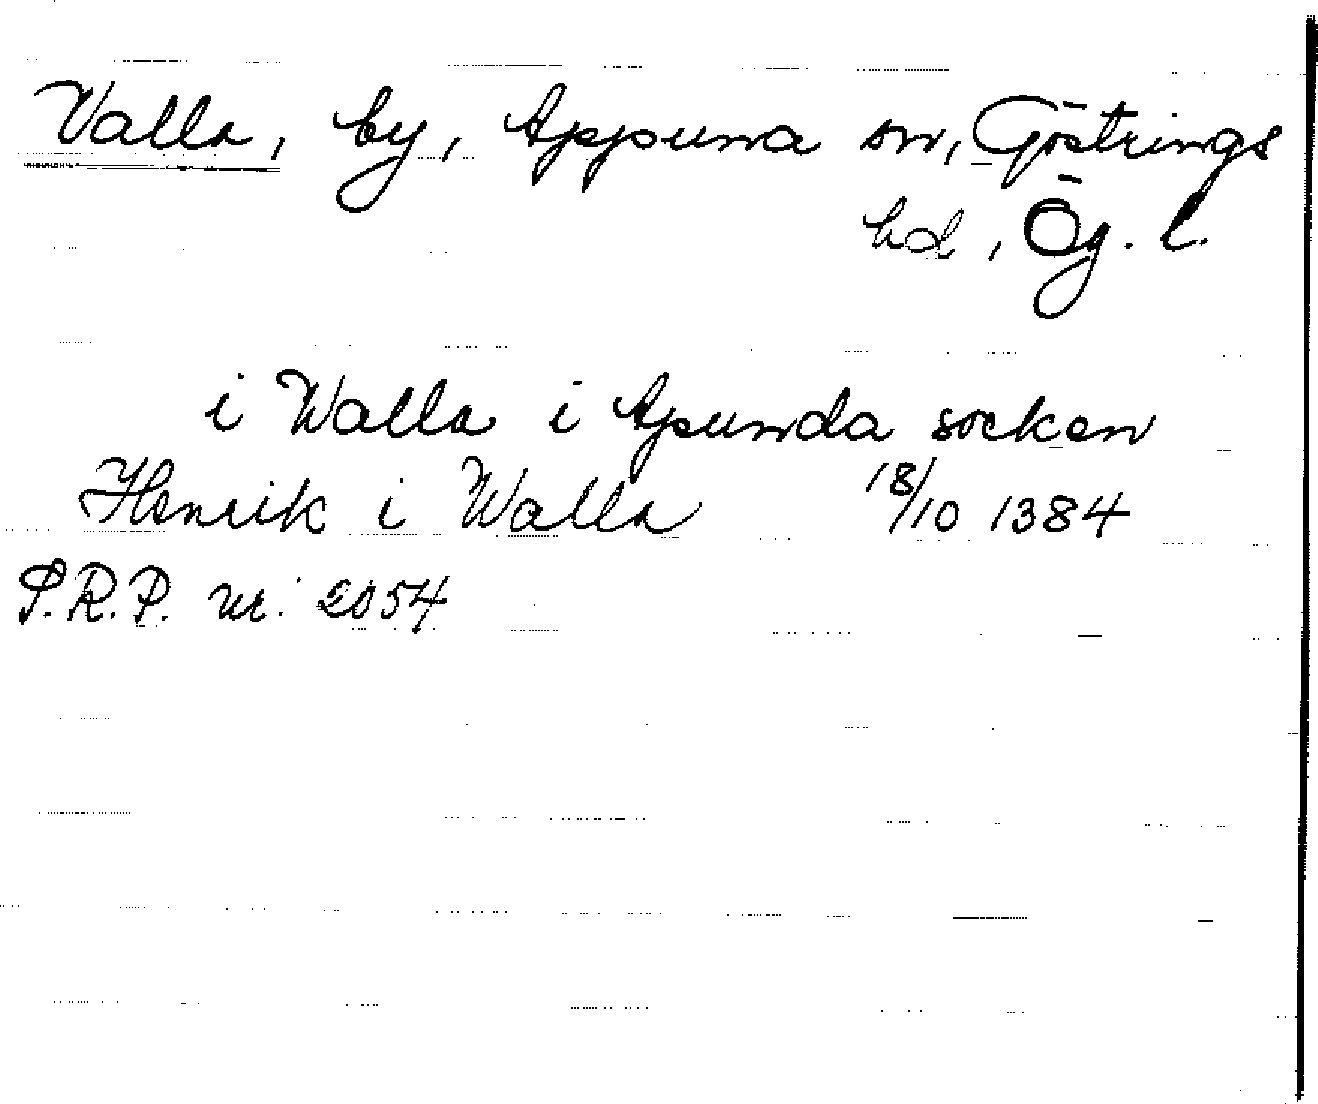 Valla, by, Appuna sn, Göstrings
hd, Ög. l.
i Walla i Apunda socken
Henrik i Walla 18/10 1384
S.R.P. nr. 2054